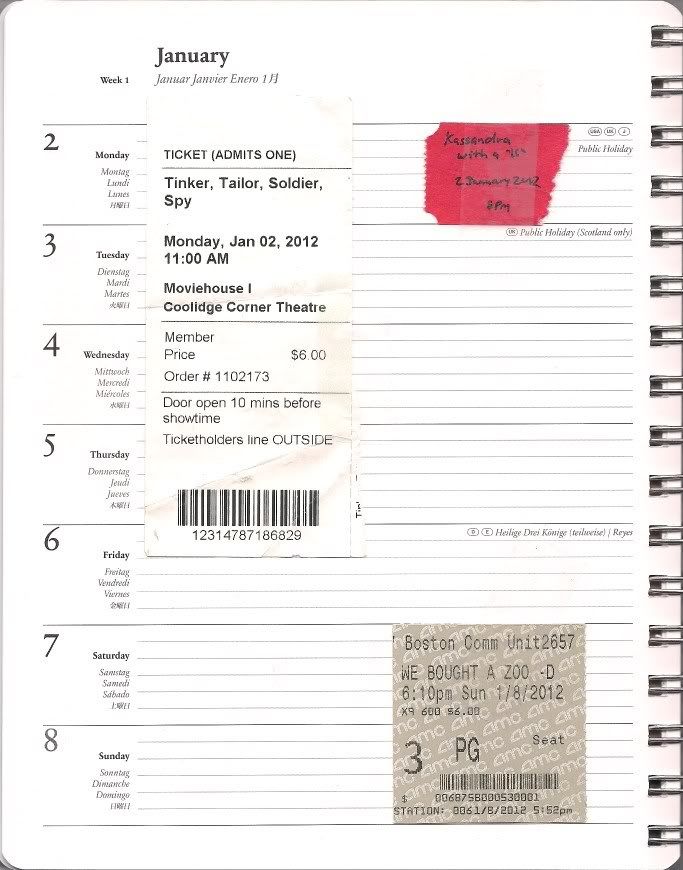 January
Week 1
Januar Janvier Enero 1月
2
Monday
Montag
Lundi
Lunes
月曜日
USA UK J
Public Holiday
TICKET (ADMITS ONE)
Tinker, Tailor, Soldier,
Spy
Monday, Jan 02, 2012
11:00 AM
Moviehouse I
Coolidge Corner Theatre
Member
Price $6.00
Order # 1102173
Door open 10 mins before
showtime
Ticketholders line OUTSIDE
12314787186829
Kassandra
with a "K"
2 January 2012
8pm
3
Tuesday
Dienstag
Mardi
Martes
火曜日
UK Public Holiday (Scotland only)
4
Wednesday
Mittwoch
Mercredi
Miércoles
水曜日
5
Thursday
Donnerstag
Jeudi
Jueves
木曜日
6
Friday
Freitag
Vendredi
Viernes
金曜日
D E Heilige Drei Könige (teilweise) | Reyes
7
Saturday
Samstag
Samedi
Sábado
土曜日
8
Sunday
Sonntag
Dimanche
Domingo
日曜日
amc
Boston Comm Unit2657
WE BOUGHT A ZOO -D
6:10pm Sun 1/8/2012
$6.00
3 PG Seat
$ 006875B000530001
STATION: 0061/8/2012 5:52pm